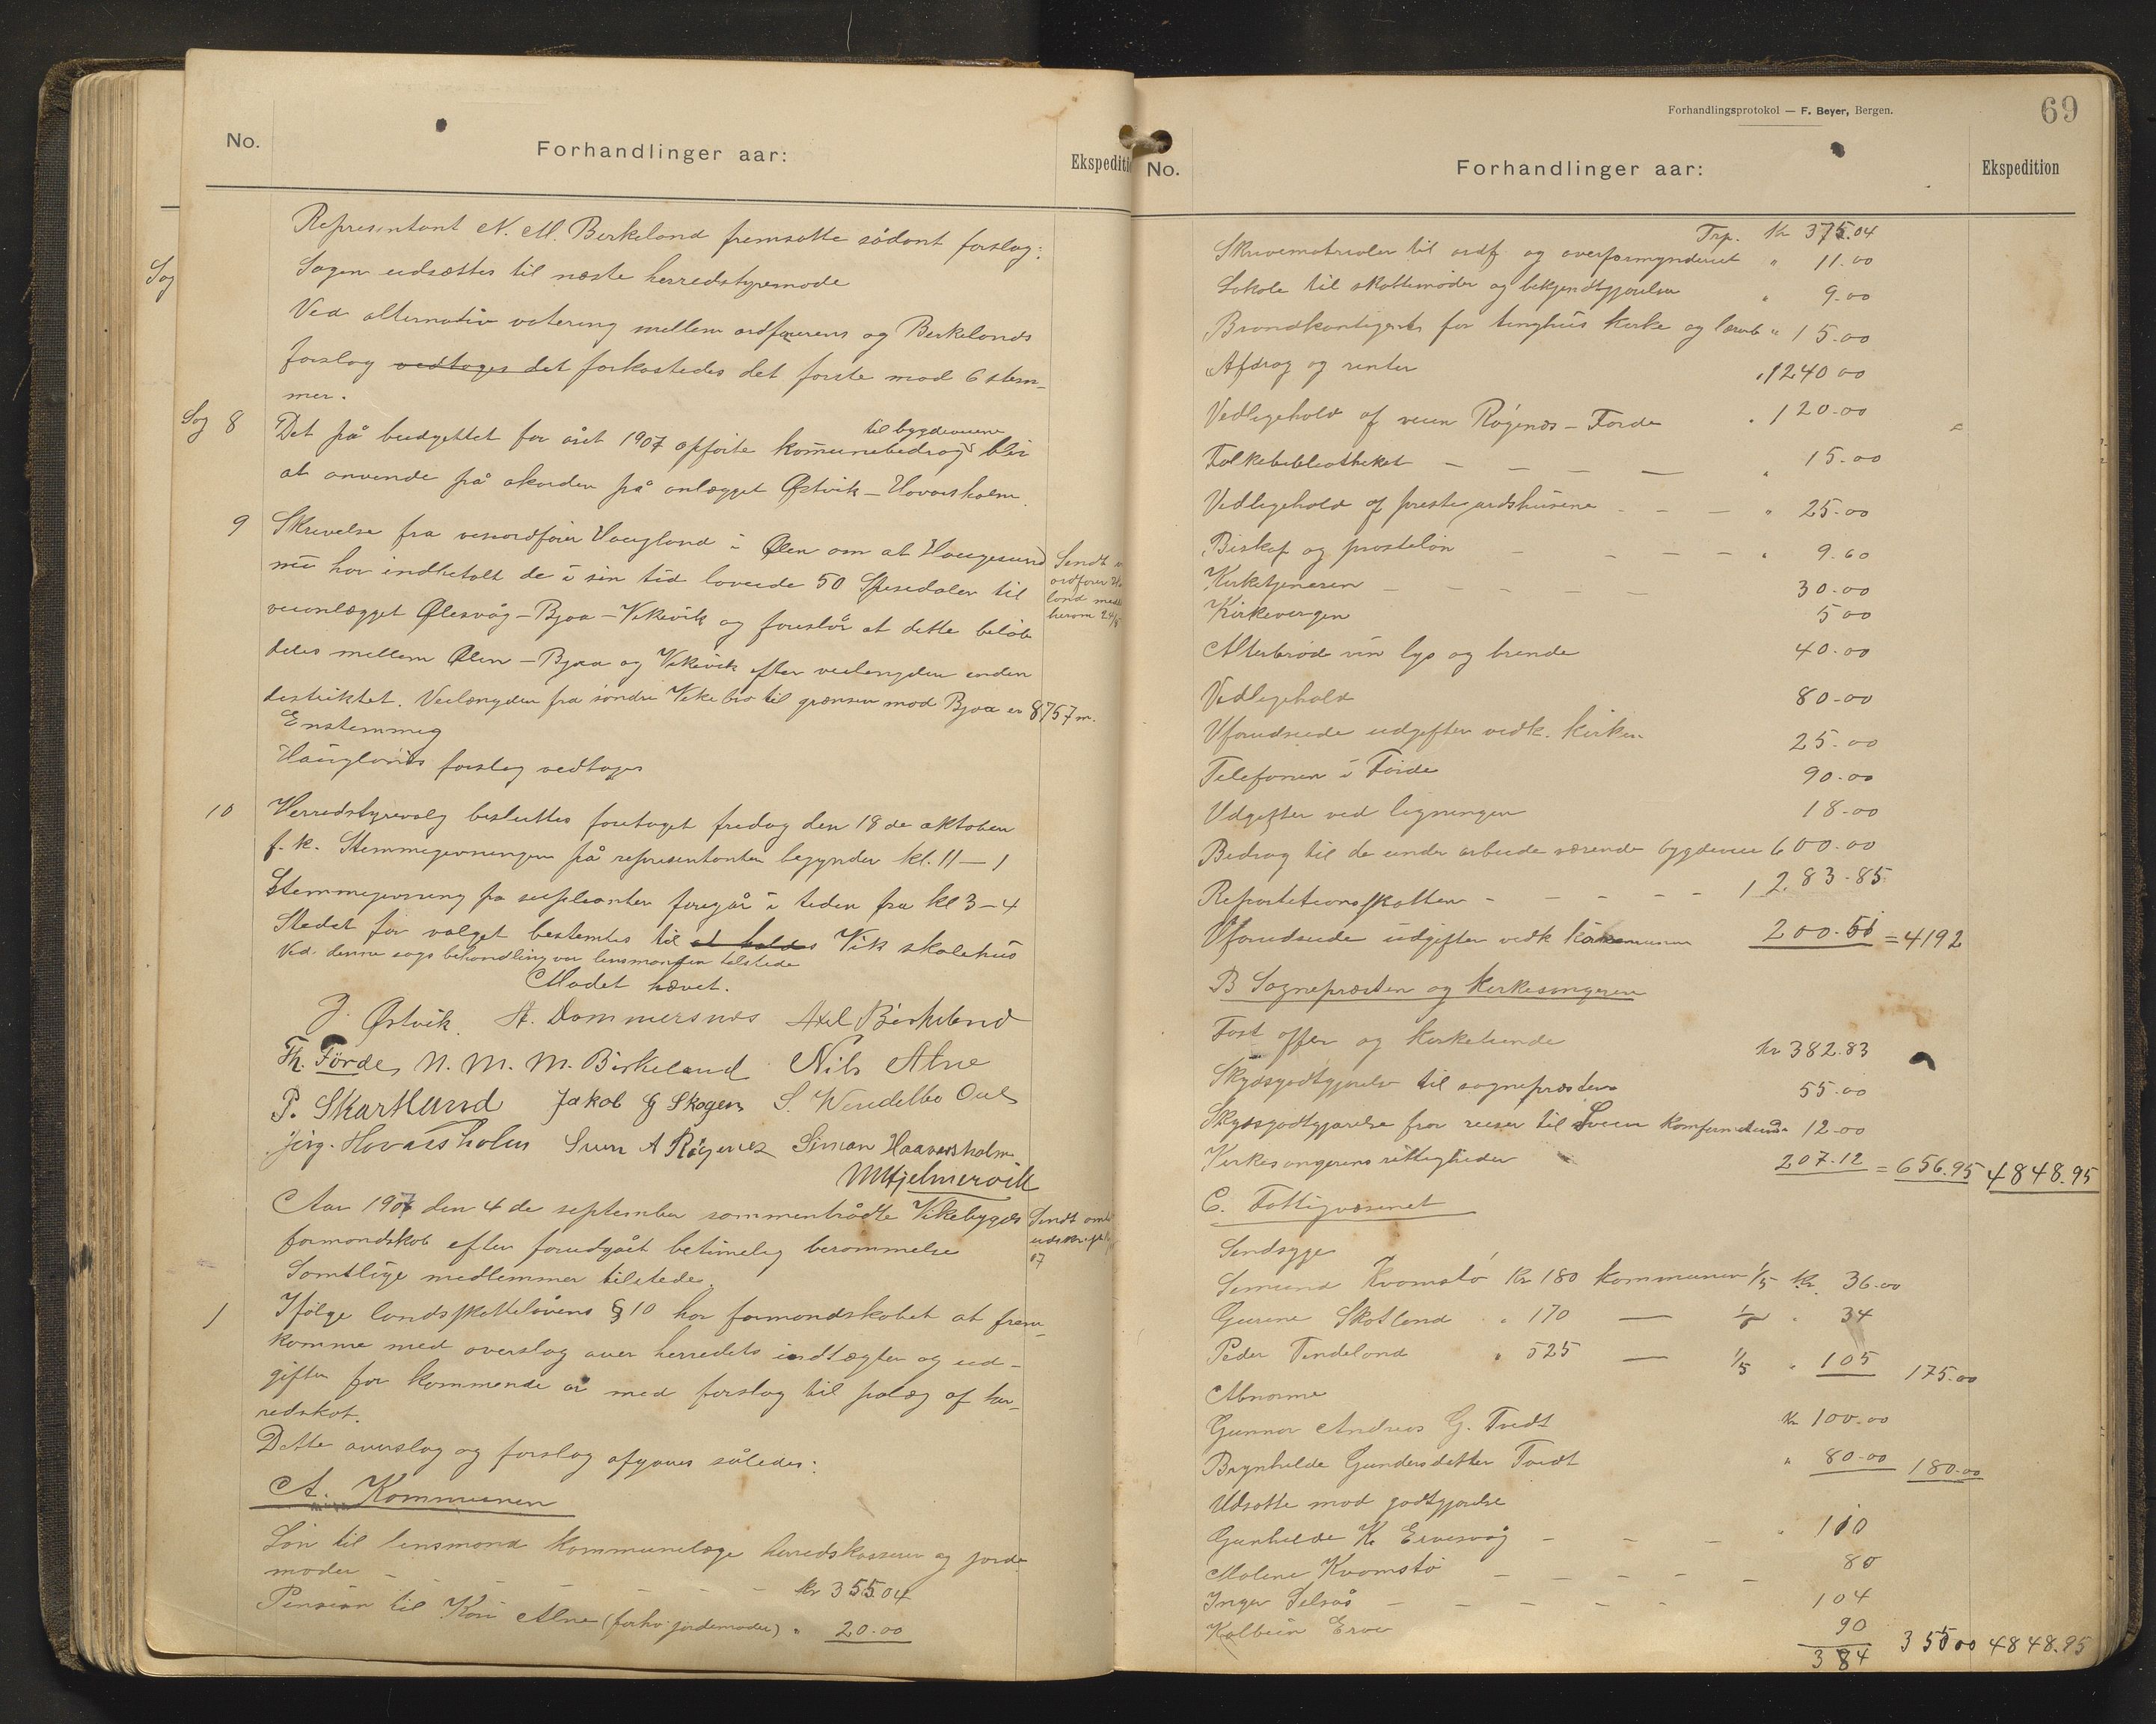 No.
Forhandlinger aar:
Representant N. M. Birkeland fremsatte sådant forslag:
Sagen udsættes til næste herredstyremøde
Ved alternativ votering mellem ordførerens og Birkelands
forslag vedtoges det forkastedes det første mod 6 stem-
mer.
Sag 8
til bygdeveiene
Det på budgettet for året 1907 opførte komunebedrag blir
at anvende på akorden på anlægget Østvik – Hovarsholm.
9
Skrivelse fra viseordfører Haugland i Ølen om at Haugesund
nu har indbetalt de i sin tid lovede 50 Spesidaler til
veianlægget Ølesvåg – Bjoa – Vikevik og foreslår at dette beløb
deles mellem Ølen – Bjoa og Vikevik efter veilengden inden
destriktet. Veilængden fra søndre Vike bro til grænsen mod Bjoa er 8757 m.
Enstemmig
Hauglands forslag vedtages
10
Herredstyrevalg besluttes foretaget fredag den 18 de oktober
f. k. Stemmegivningen på representanter begynder kl. 11 – 1
Stemmegivning på supleanter foregår i tiden fra kl 3 – 4
Stedet for valget bestemtes til at holdes Vik skolehus
Ved denne sags behandling var lensmanden tilstede
Mødet hævet.
J. Østvik. A. Dommersnes Axel Birkeland
Th. Førde, N. M. M. Birkeland Nils Alne
P. Skartland Jakob G Skogen S. Wendelbo
Jørg. Hovarsholm Sven A Røgenes Simon Haavarsholm
M Hjelmervik
Aar 1907 den 4 de september sammentrådte Vikebygds
formandskab efter forudgået betimelig berammelse
Samtlige medlemmer tilstede.
1
Ifølge landsskattelovens § 10 har formandskabet at frem-
komme med overslag over herredets indtægter og ud-
gifter for kommende år med forslag til pålæg af her-
redskat.
Dette overslag og forslag afgaves således:
A. Kommunen
Løn til lensmand kommunelæge herredskasserer og jorde
moder – – – – kr 355.04
Pension til Kari Alne (forhv. jordemoder) " 20.00
Forhandlingsprotokol — F. Beyer, Bergen.
69
No.
Forhandlinger aar:
Ekspedition
Trp. Kr 375.04
Skrivematrialer til ordf og overformynderiet " 11.00
Lokale til skattemøder og bekjendtgjørelser " 9.00
Brandkontigent for tinghus kirke og " 15.00
Afdrag og renter " 1240 00
Vedligehold af veien Røgenes – Førde " 120.00
Folkebibliotheket – – – – " 15.00
Vedligehold af prestegardshusene – – – " 25.00
Biskop og prosteløn – – – – " 9.60
Kirketjeneren – – – – – 30.00
Kirkevergen 5 00
Alterbrød vin lys og brende 40.00
Vedligehold 80.00
Uforudseede udgifter vedk. kirken 25.00
Telefonen i Førde 90.00
Udgifter ved ligningen 18.00
Bedrag til de under arbeide værende bygdeveie 600.00
Repartetionsskatten – – – – 1283.85
Uforudseede udgifter vedk kommunen 200.51 = 4192
B Sognepræsten og kirkesangeren
Fast offer og kirketiende Kr 382.83
Skydsgodtgjørelse til sognepræsten 55.00
Skydsgodtgjørelse for reiser til Sveen 12.00
Kirkesangerens rettigheder 207.12 = 656.95 4848.95
C. Fattigvæsenet
Sindsyge
Kvamstø Kr 180 kommunen 1/5 Kr. 36.00
Gurine Skotland " 170 — 1/5 " 34
Peder Tindeland " 525 — 1/5 " 105 175.00
Abnorme
Gunnar Andreas G. Tvedt Kr 100.00
Brynhilde Gundersdatter Tvedt " 80.00 180.00
Udsatte mod godtgjørelse
Gunhilde K. Ervesvåg – – – " 110
Malene Kvamstø – – – – – 80
Inger Selsås – – – – – 104
Kolbein Erve 90
384 355 00 4848.95